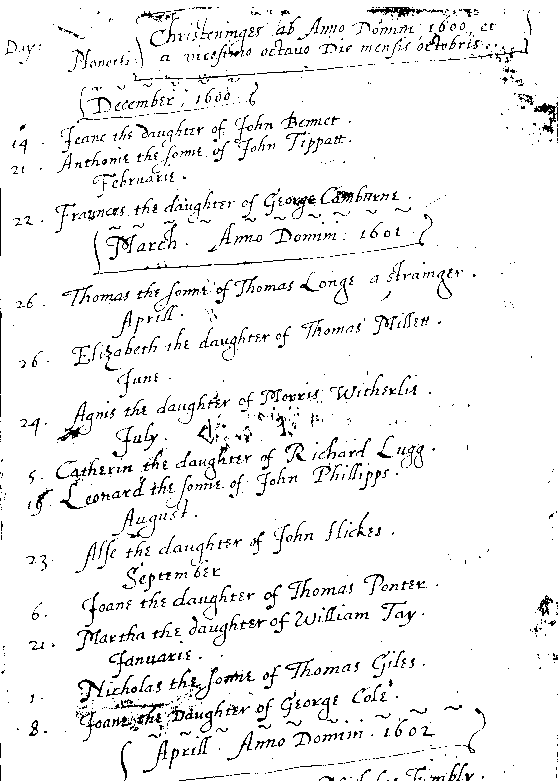 Day: Moneth: Christeninges ab Anno Domini 1600, et
a vicessimo octavo Die mensis octobris
December, 1600
14. Jeane the daughter of John Bennet.
21. Anthonie the sonne of John Tippatt.
Februarie.
22. Fraunces the daughter of George Camburne.
March. Anno Domini: 1601
26. Thomas the sonne of Thomas Longe a strainger.
Aprill.
26. Elizabeth the daughter of Thomas Millett.
June.
24. Agnis the daughter of Morris Witherlie
July.
5. Catherin the daughter of Richard Lugg.
Leonard the sonne of John Phillipps.
August.
23. Alse the daughter of John Hickes.
September
6. Joane the daughter of Thomas Ponter.
21. Martha the daughter of William Tay.
Januarie.
1. Nicholas the sonne of Thomas Giles.
8. Joane the Daughter of George Cole.
Aprill. Anno Domini. 1602